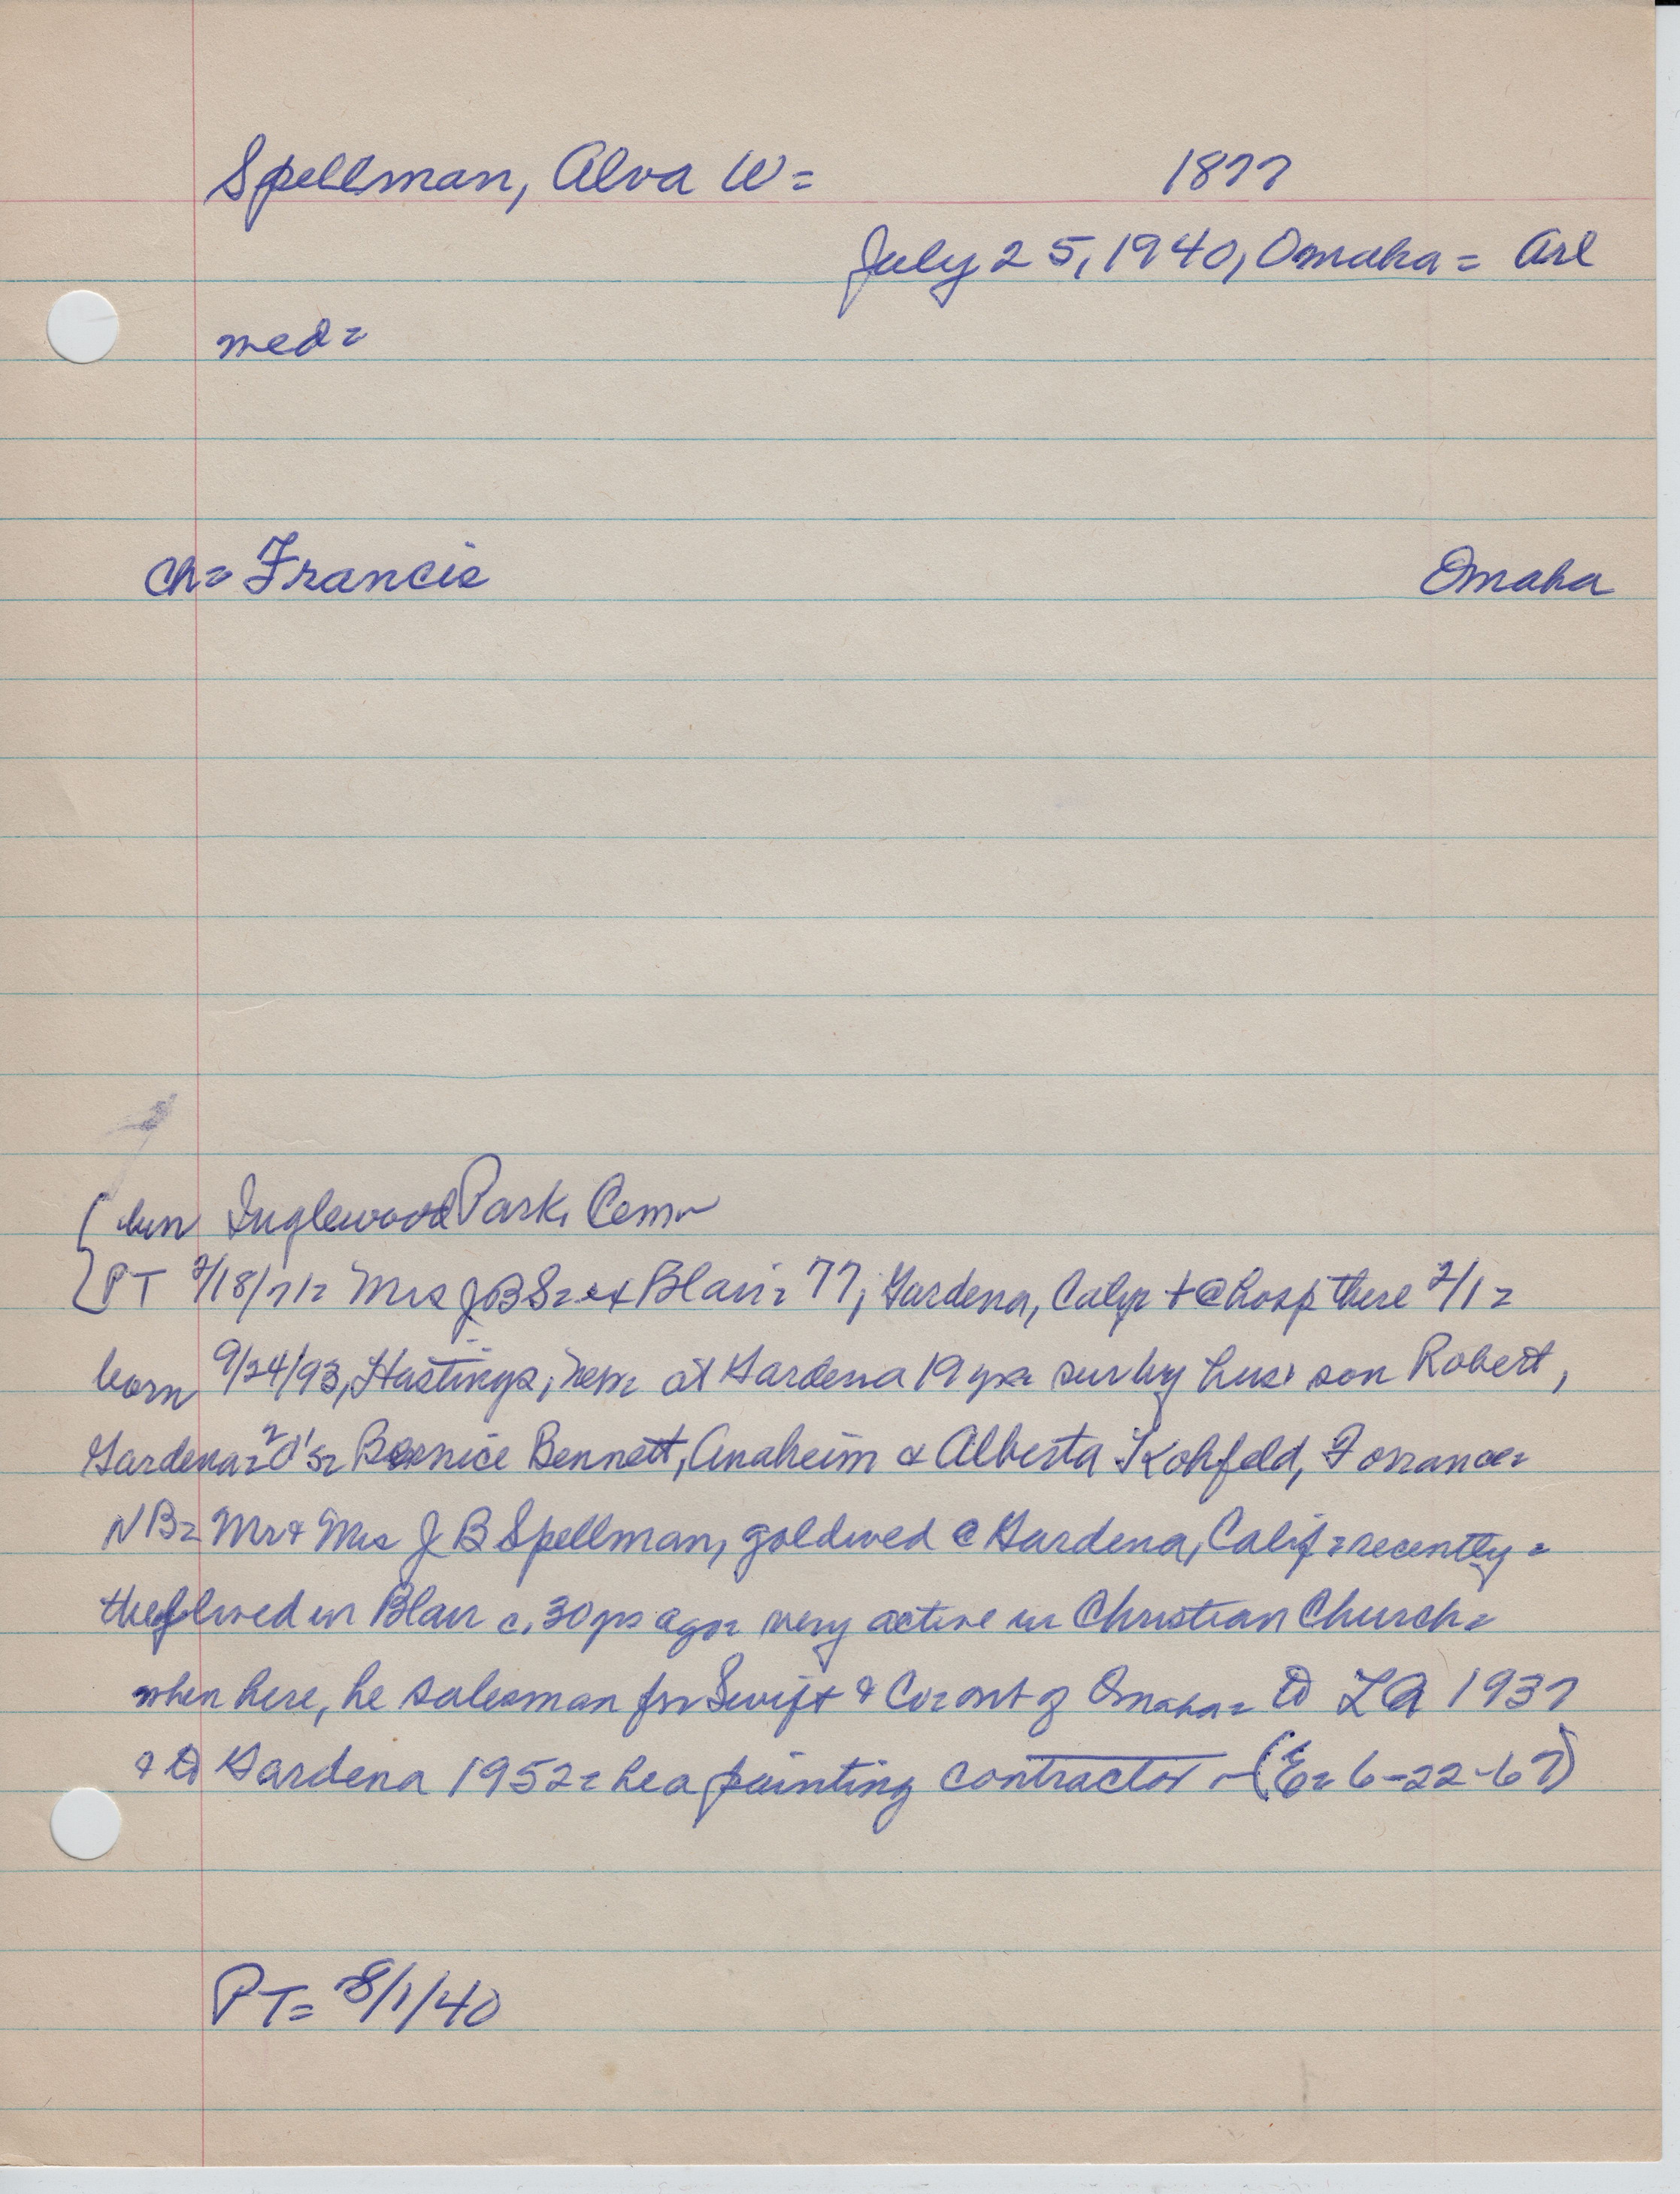 Spellman, Alva W= 1877
July 25, 1940, Omaha = Arl
med=
ch= Francis Omaha
bur Inglewood Park Cem=
PT 2/18/71= Mrs J B S= ex Blair= 77, Gardena, Calif= + @ hosp there 2/1=
born 9/24/93, Hastings, Neb= at Gardena 19 yrs= sur by hus= son Robert,
Gardena= 2 d's= Bernice Bennett, Anaheim & Alberta Kohfeld, Torrance=
NB= Mr & Mrs J B Spellman, goldwed @ Gardena, Calif= recently=
they lived in Blair c. 30 yrs ago= very active in Christian Church=
when here, he salesman for Swift & Co= out of Omaha= to LA 1937
& to Gardena 1952= he a painting contractor - (E= 6-22-67)
PT= 8/1/40